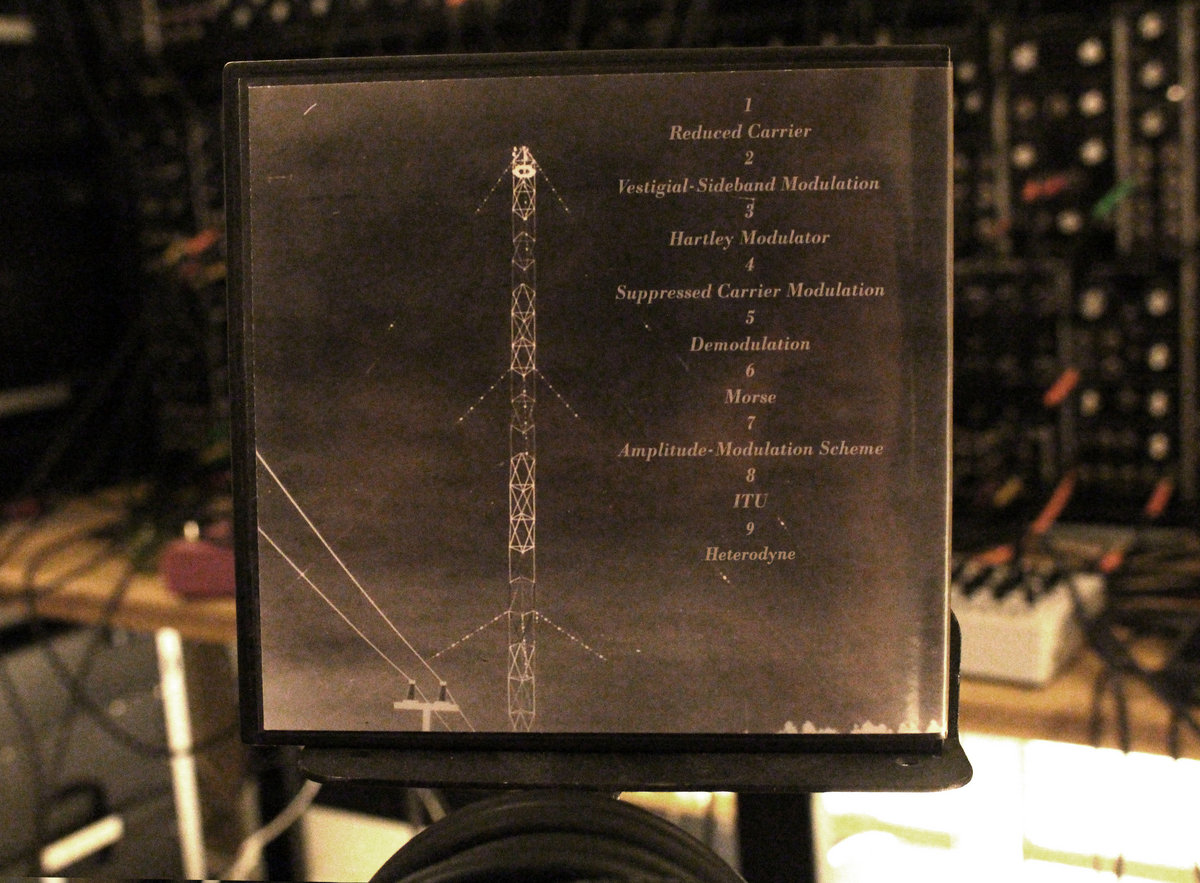 1
Reduced Carrier
2
Vestigial-Sideband Modulation
3
Hartley Modulator
4
Suppressed Carrier Modulation
5
Demodulation
6
Morse
7
Amplitude-Modulation Scheme
8
ITU
9
Heterodyne